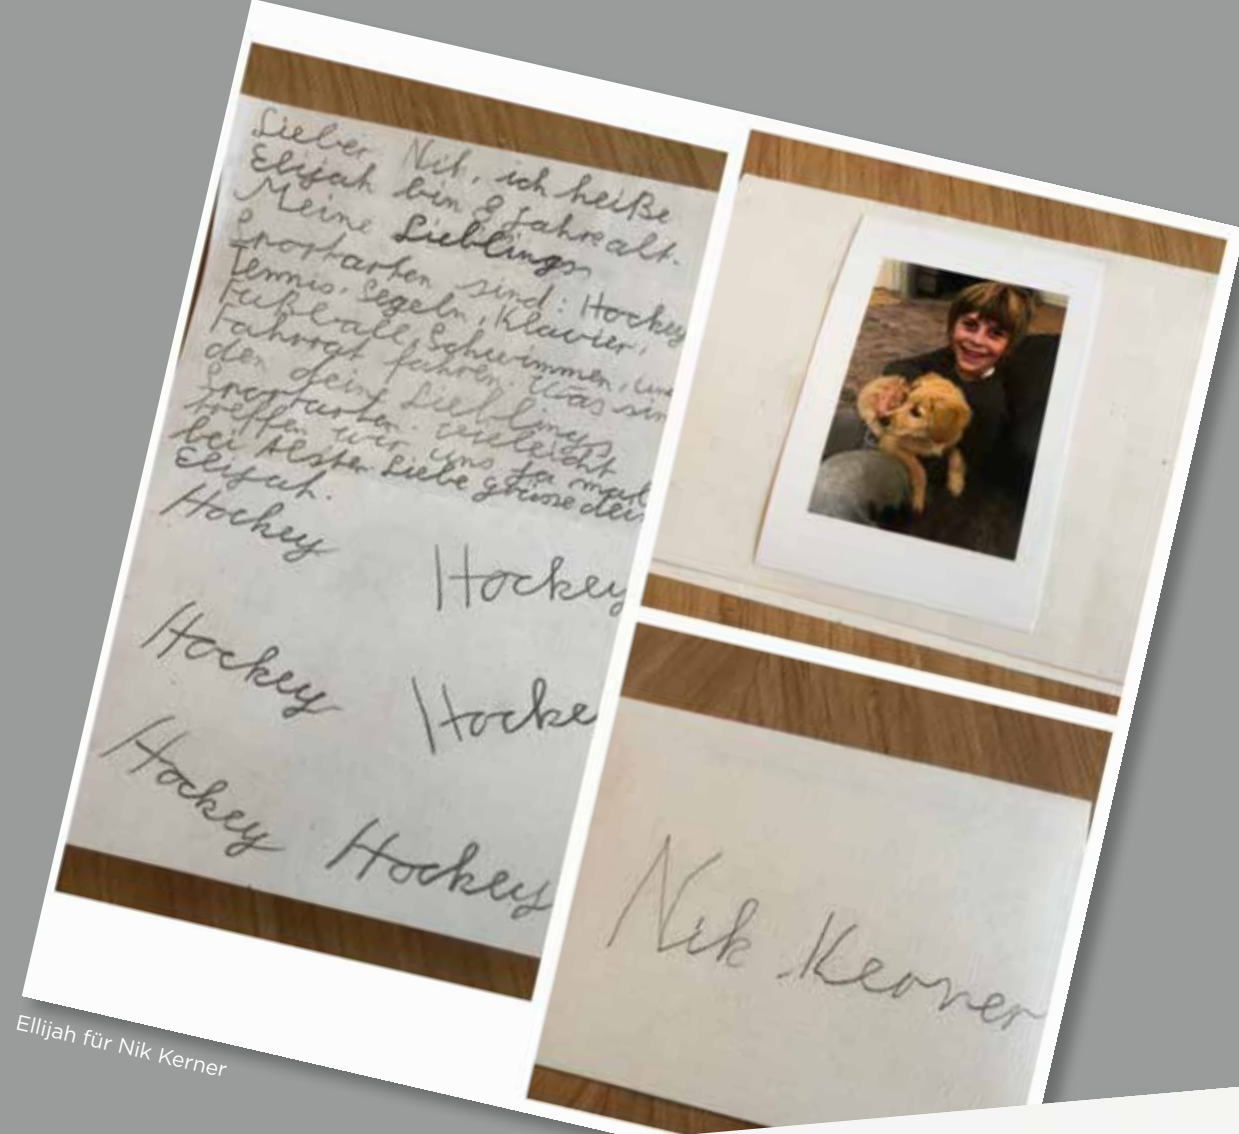 Lieber Nik, ich heiße
Elijah bin 8 Jahre alt.
Meine Lieblings
sportarten sind: Hockey
Tennis, Segeln, Klavier,
Fußball, Schwimmen, und
Fahrrat fahren. Was sin
den deine Lieblings
sportarten. vieleicht
treffen wir uns ja mal
bei Alster Liebe grüsse dein
Elijah.
Hockey Hockey
Hockey Hocke
Hockey Hockey
Nik Kerner
Ellijah für Nik Kerner